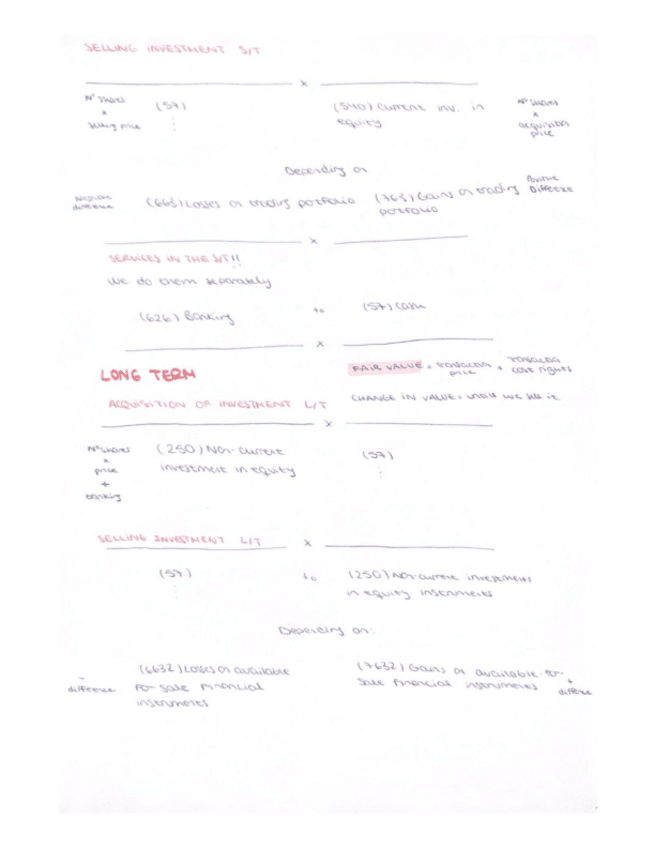 SELLING INVESTMENT S/T
x
Nº Shares x selling price
(57)
(540) Current inv. in equity
Nº Shares x acquisition price
Depending on
Negative difference
(663) Losses on trading portfolio
(763) Gains on trading portfolio
Positive Difference
x
SERVICES IN THE S/T!!
We do them separately
(626) Banking to (57) Cash
x
LONG TERM
FAIR VALUE = transaction price + transaction cost rights
ACQUISITION OF INVESTMENT L/T
CHANGE IN VALUE = until we sell it
x
Nº shares x price + banking
(250) Non-current investment in equity
(57)
SELLING INVESTMENT L/T x
(57) to (250) Non-current investments in equity instruments
Depending on:
- difference
(6632) Losses on available for sale financial instruments
(7632) Gains on available-for-sale financial instruments
+ difference